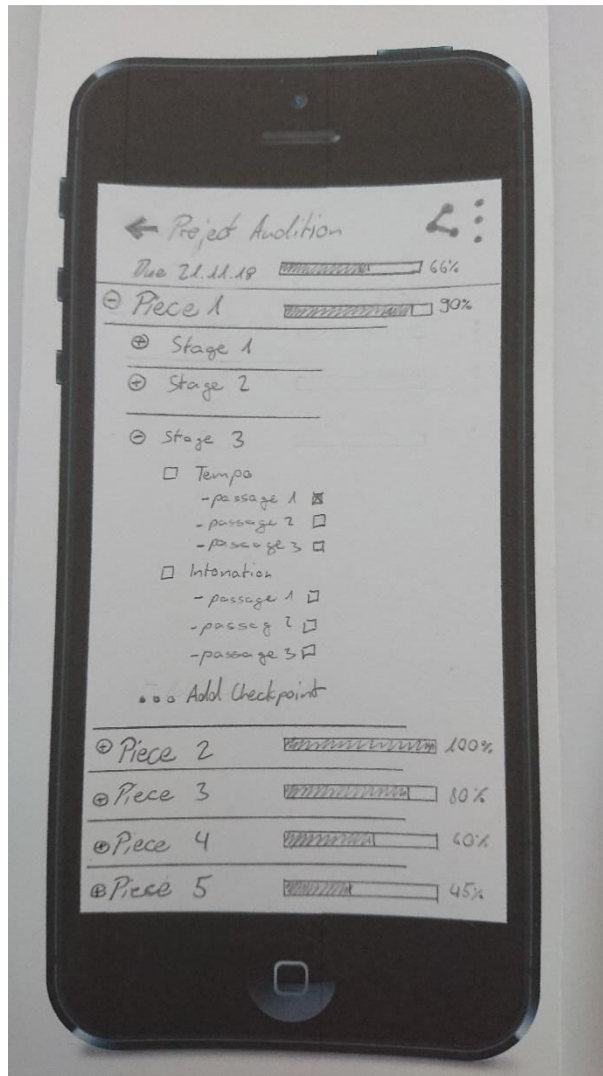 Project Audition
Due 21.11.18 66%
Piece 1 90%
Stage 1
Stage 2
Stage 3
Tempo
-passage 1
-passage 2
-passage 3
Intonation
-passage 1
-passag 2
-passage 3
Add Checkpoint
Piece 2 100%
Piece 3 80%
Piece 4 60%
Piece 5 45%